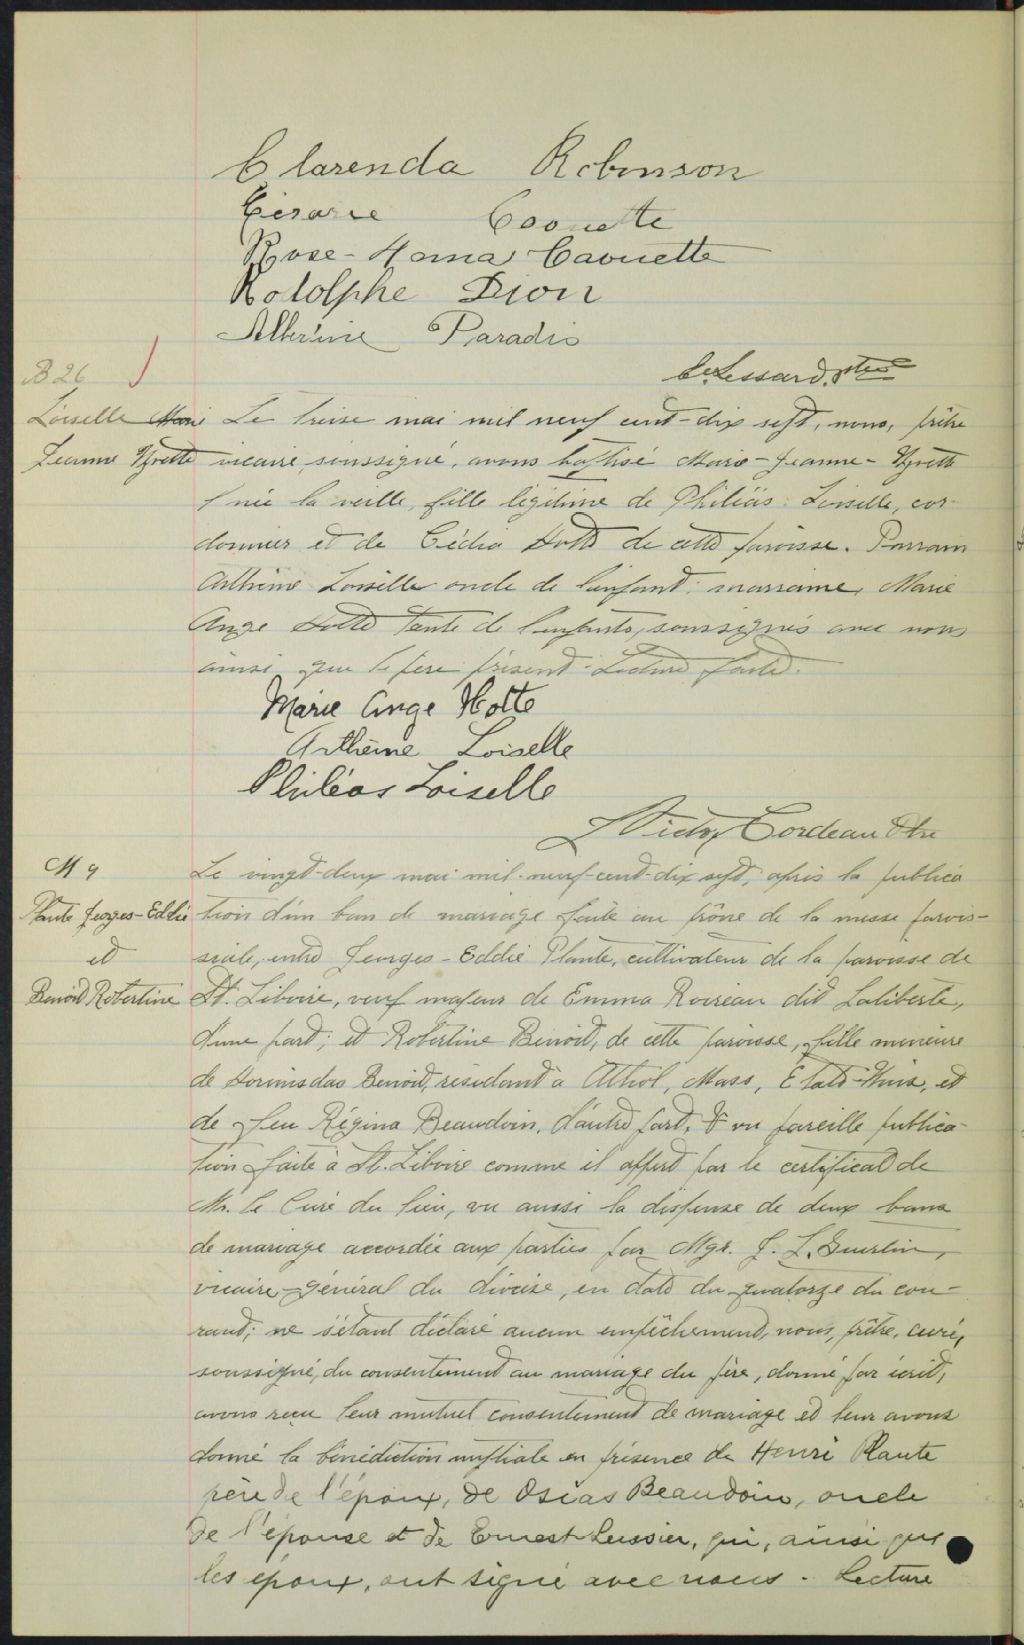 Clarenda Robinson
Césarie Caouette
Rose-Anna Caouette
Rodolphe Dion
Albérine Paradis
C. Lessard, ptre
B 26
Loiselle Marie Jeanne Yvette
Le treize mai mil neuf cent-dix sept, nous, prêtre
vicaire soussigné, avons baptisé Marie-Jeanne-Yvette
née la veille, fille légitime de Philéas Loiselle, cor-
donnier et de Cédia Hotte de cette paroisse. Parrain
Arthème Loiselle oncle de l'enfant; marraine, Marie
Ange Hotte tante de l'enfant, soussignés avec nous
ainsi que le père présent. Lecture faite.
Marie Ange Hotte
Arthème Loiselle
Philéas Loiselle
Victor Cordeau Ptre
M 9
Plante Georges-Eddie
et
Benoit Robertine
Le vingt-deux mai mil-neuf-cent-dix sept, après la publica
tion d'un ban de mariage faite au prône de la messe parois-
siale, entre Georges-Eddie Plante, cultivateur de la paroisse de
St. Liboire, veuf majeur de Emma Roireau dit Laliberté,
d'une part; et Robertine Benoit, de cette paroisse, fille mineure
de Hormisdas Benoit, résidant à Athol, Mass, États-Unis, et
de feu Régina Beaudoin, d'autre part, Vu pareille publica-
tion faite à St. Liboire comme il appert par le certificat de
Mr. le Curé du lieu, vu aussi la dispense de deux bans
de mariage accordée aux parties par Mgr. J. L. Guertin,
vicaire-général du diocèse, en date du quatorze du cou-
rant; ne s'étant déclaré aucun empêchement, nous, prêtre, curé,
soussigné, du consentement au mariage du père, donné par écrit,
avons reçu leur mutuel consentement de mariage et leur avons
donné la bénédiction nuptiale en présence de Henri Plante
père de l'époux, de Osias Beaudoin, oncle
de l'épouse et de Ernest Lussier, qui, ainsi que
les époux, ont signé avec nous. Lecture